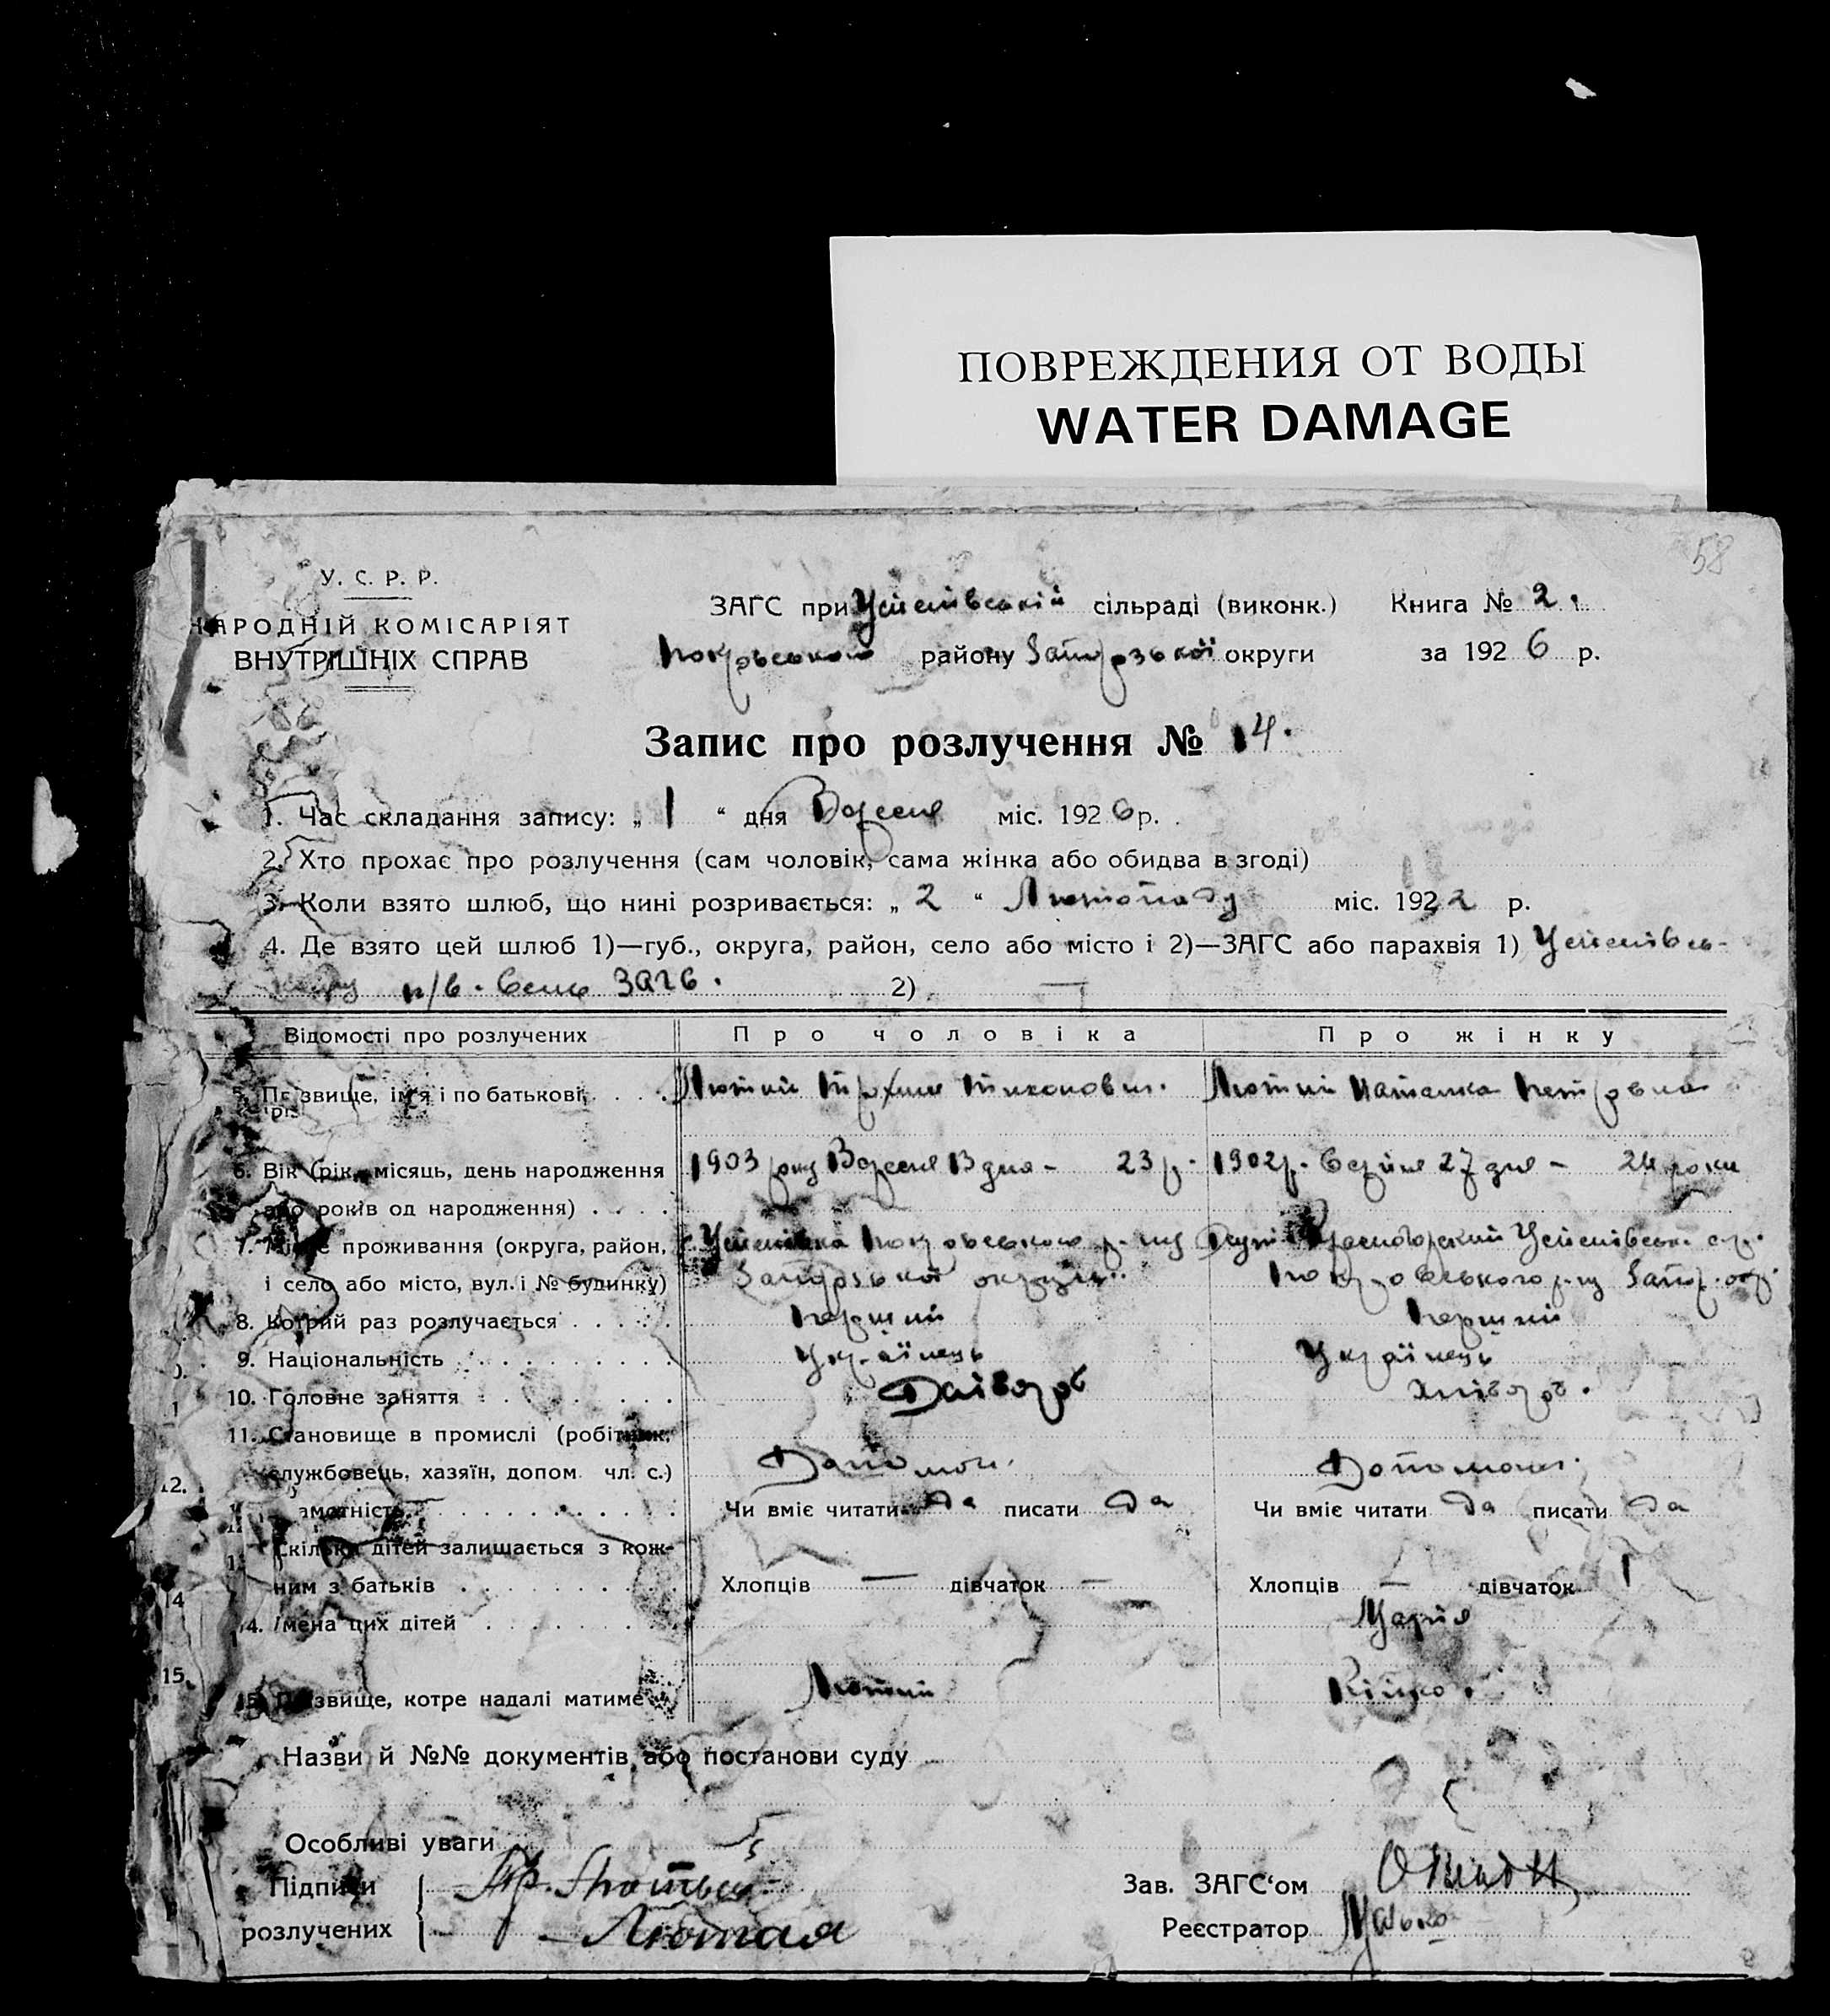 ПОВРЕЖДЕНИЯ ОТ ВОДЫ
WATER DAMAGE
58
У. С. Р. Р.
НАРОДНІЙ КОМІСАРІЯТ
ВНУТРІШНІХ СПРАВ
ЗАГС при Успенівській сільраді (виконк.) Книга № 2.
Покровського району Запорізької округи за 1926 р.
Запис про розлучення № 14.
1. Час складання запису: „ 1 “ дня Вересня міс. 1926 р.
2. Хто прохає про розлучення (сам чоловік, сама жінка або обидва в згоді)
3. Коли взято шлюб, що нині розривається: „ 2 “ Листопаду міс. 1922 р.
4. Де взято цей шлюб 1)—губ., округа, район, село або місто і 2)—ЗАГС або парахвія 1) Успенівсь-
2) —
Відомості про розлучених Про чоловіка Про жінку
5. Прізвище, ім'я і по батькові Лютий Трохим Тихонович. Лютий Наталка Петровна
6. Вік (рік, місяць, день народження 1903 року Вересня 13 дня - 23 р. 1902 р. Серпня 27 дня - 24 роки
або років од народження)
7. Місце проживання (округа, район, Успенівка Покровського р-ну Успенівськ.
і село або місто, вул. і № будинку) Запорізької округи Покровського р-ну Запор. окр.
8. Котрий раз розлучається Перший Перший
9. Національність Українець Українець
10. Головне заняття Хлібороб.
11. Становище в промислі (робітник,
службовець, хазяїн, допом. чл. с.) Допомож. Допомож.
12. амотність Чи вміє читати Да писати Да Чи вміє читати Да писати Да
13. Скільки дітей залишається з кож-
ним з батьків Хлопців — дівчаток — Хлопців — дівчаток 1
14. Імена цих дітей Марія
15. Прізвище, котре надалі матиме Лютий
Назви й №№ документів або постанови суду
Особливі уваги
Підписи Тр. Лютый Зав. ЗАГС‘ом
розлучених Лютая Реєстратор